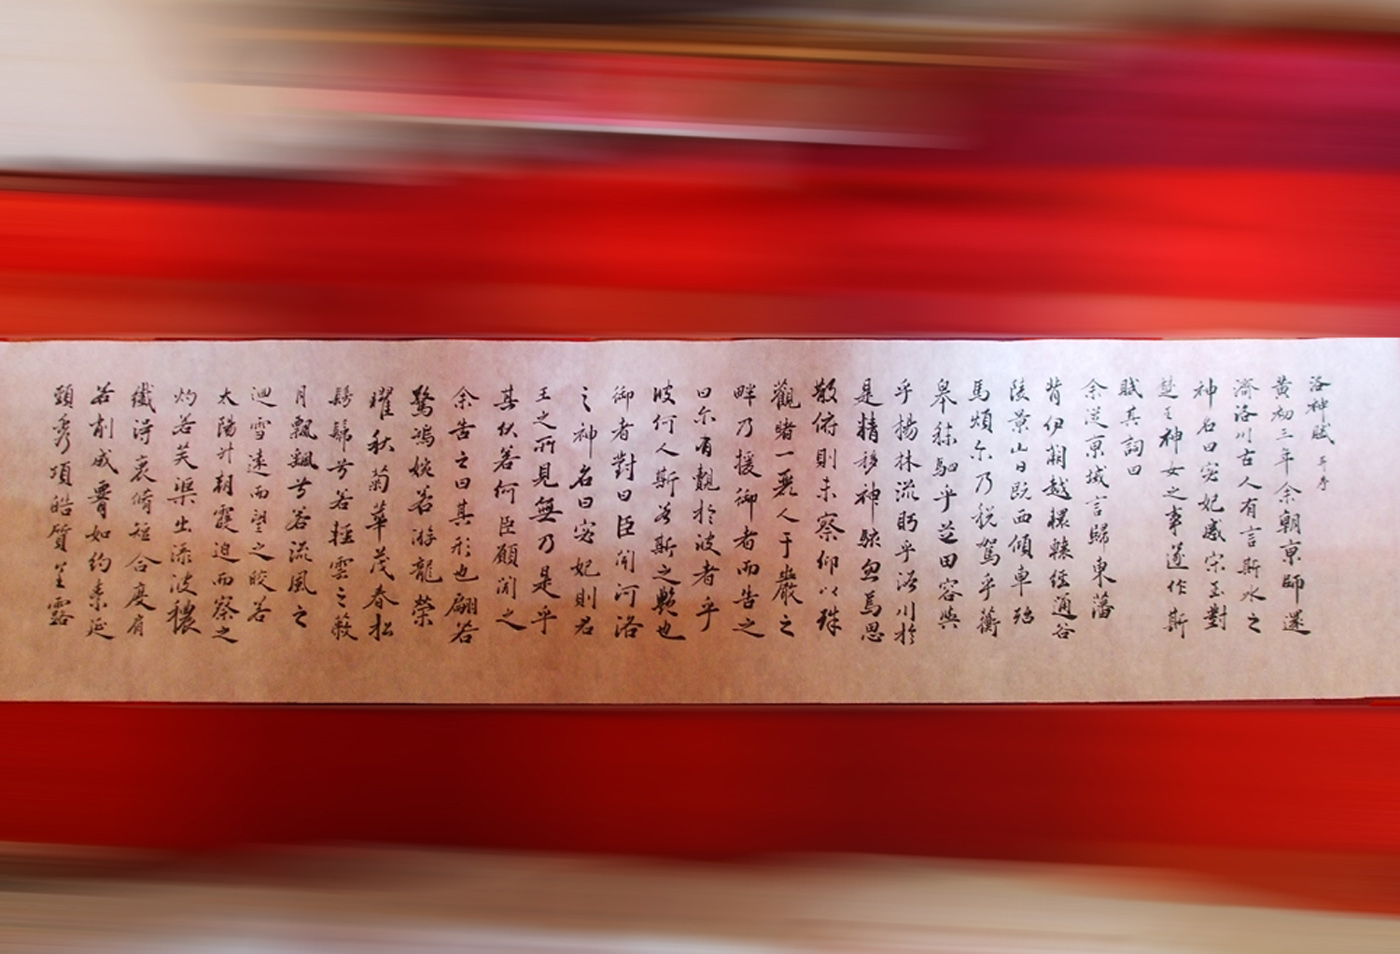 洛神賦 并序
黄初三年余朝京師還
濟洛川古人有言斯水之
神名曰宓妃感宋玉對
楚王神女之事遂作斯
賦其詞曰
余從京域言歸東藩
背伊闕越轘轅經通谷
陵景山日既西傾車殆
馬煩尓乃税駕乎蘅
皋秣駟乎芝田容與
乎楊林流眄乎洛川於
是精移神駭忽焉思
散俯則未察仰以殊
觀睹一麗人于巖之
畔乃援御者而告之
曰尓有覿於波者乎
波何人斯若斯之艷也
御者對曰臣聞河洛
之神名曰宓妃則君
王之所見無乃是乎
其狀若何臣願聞之
余告之曰其形也翩若
驚鴻婉若游龍榮
曜秋菊華茂春松
髣髴兮若輕雲之蔽
月飄飖兮若流風之
迴雪遠而望之皎若
太陽升朝霞迫而察之
灼若芙渠出淥波穠
纖得衷脩短合度肩
若削成署如約素延
頸秀項皓質呈露